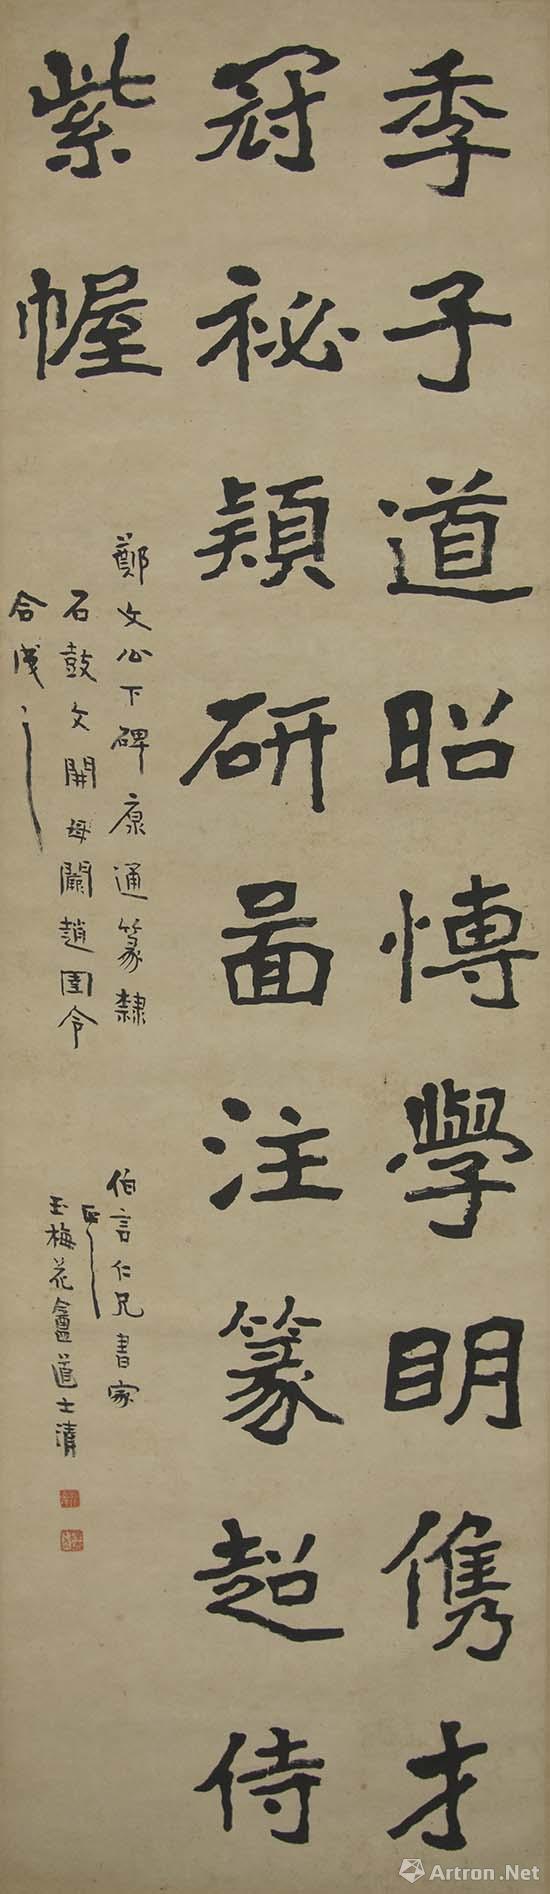 季子道昭博學明儁才
冠祕穎研圖注篆超侍
紫幄
鄭文公下碑康通篆隸
石鼓文開母闕趙圉令
合成之
伯言仁兄書家
正
玉梅花盦道士清
Artron.Net